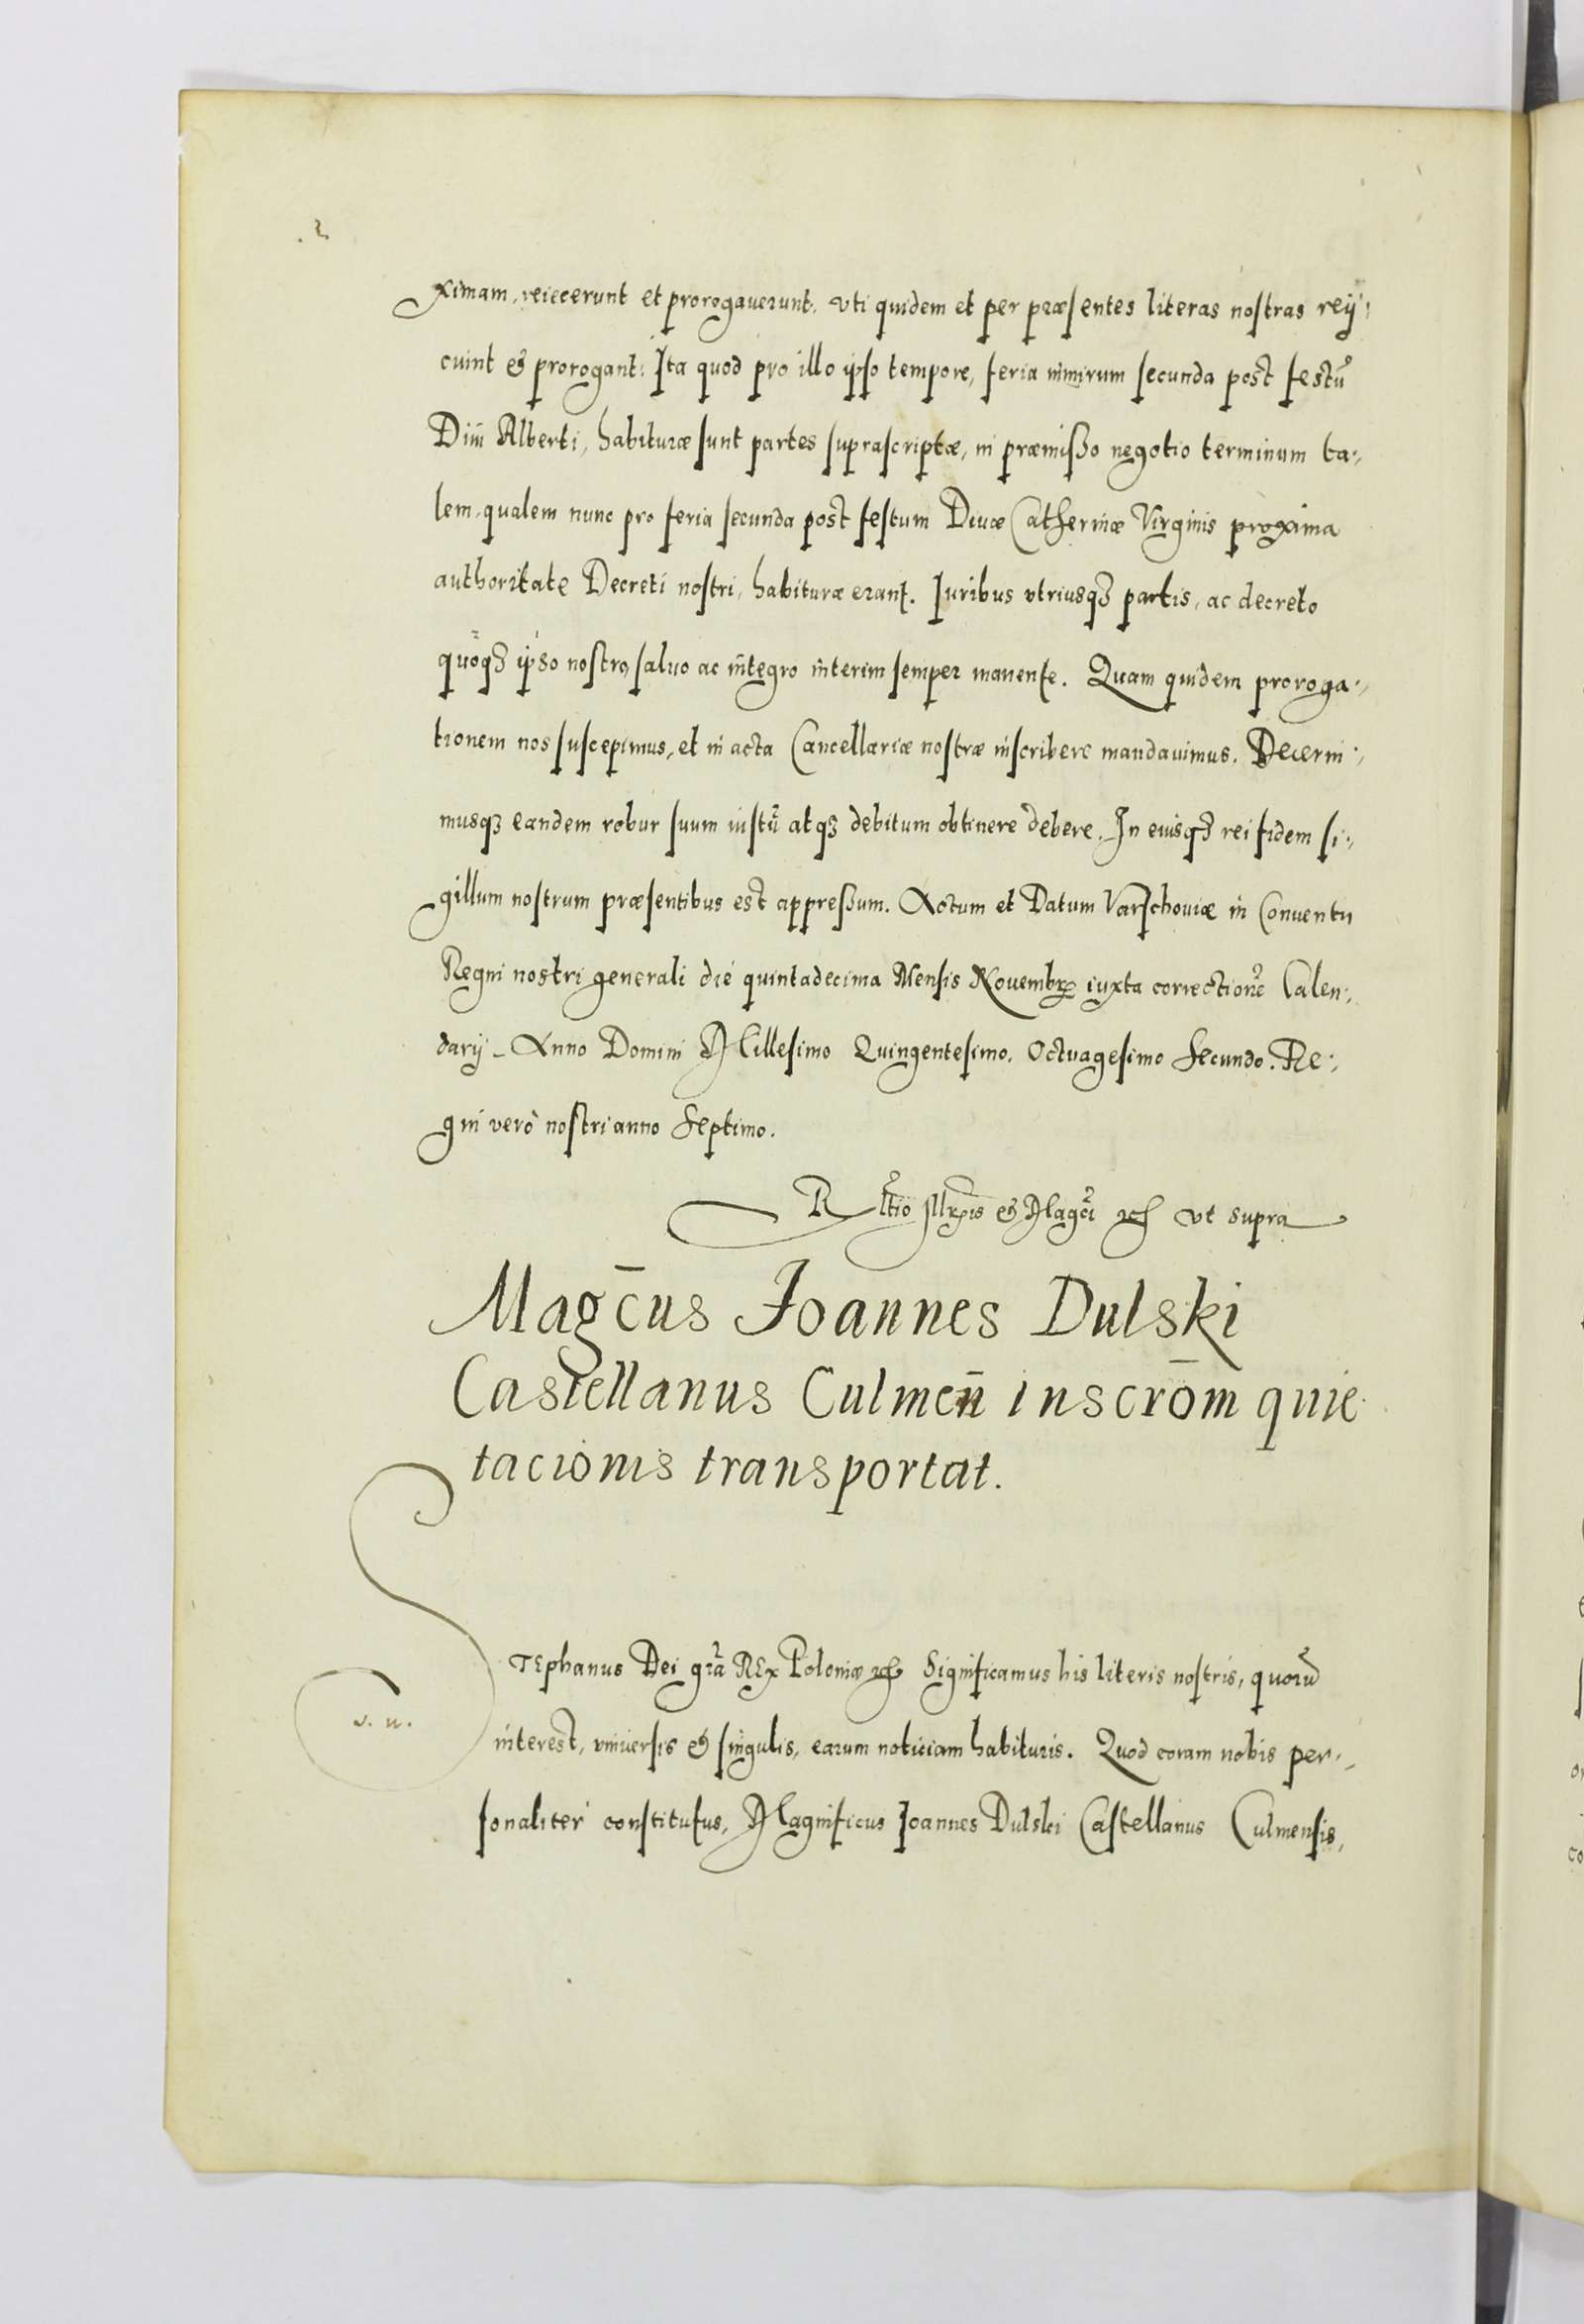 .2
ximam, reiecerunt et prorogauerunt, vti quidem et per præsentes literas nostras reij:
ciunt & prorogant: Ita quod pro illo ipso tempore, feria nimirum secunda post festũ
Diui Alberti, habituræ sunt partes suprascriptæ, in præmisso negotio terminum ta:,
lem, qualem nunc pro feria secunda post festum Diuæ Catherinæ Virginis proxima
authoritate Decreti nostri, habituræ erant. Iuribus vtriusqꝫ partis, ac decreto
quoqꝫ ipso nostro, saluo ac integro interim semper manente. Quam quidem proroga:,
tionem nos suscepimus, et in acta Cancellariæ nostræ inscribere mandauimus. Decerni:,
musqꝫ eandem robur suum iustũ atqꝫ debitum obtinere debere. In euisqꝫ rei fidem si:,
gillum nostrum præsentibus est appressum. Actum et Datum Varschouiæ in Conuentu
Regni nostri generali die quintadecima Mensis Nouembr iuxta correctionẽ Calen:,
darij - Anno Domini Millesimo Quingentesimo. Octuagesimo Secundo. Re:,
gni verò nostri anno Septimo.
R ltio Illris & Magci ut supra
Magc̄us Joannes Dulski
Castellanus Culmen̄ inscrōm quie
tacionis transportat.
STEphanus Dei grã REx Poloniæ Significamus his literis nostris, quorũ
interest, vniuersis & singulis, earum noticiam habituris. Quod coram nobis per:,
sonaliter constitutus, Magnificus Joannes Dulski Castellanus Culmensis,